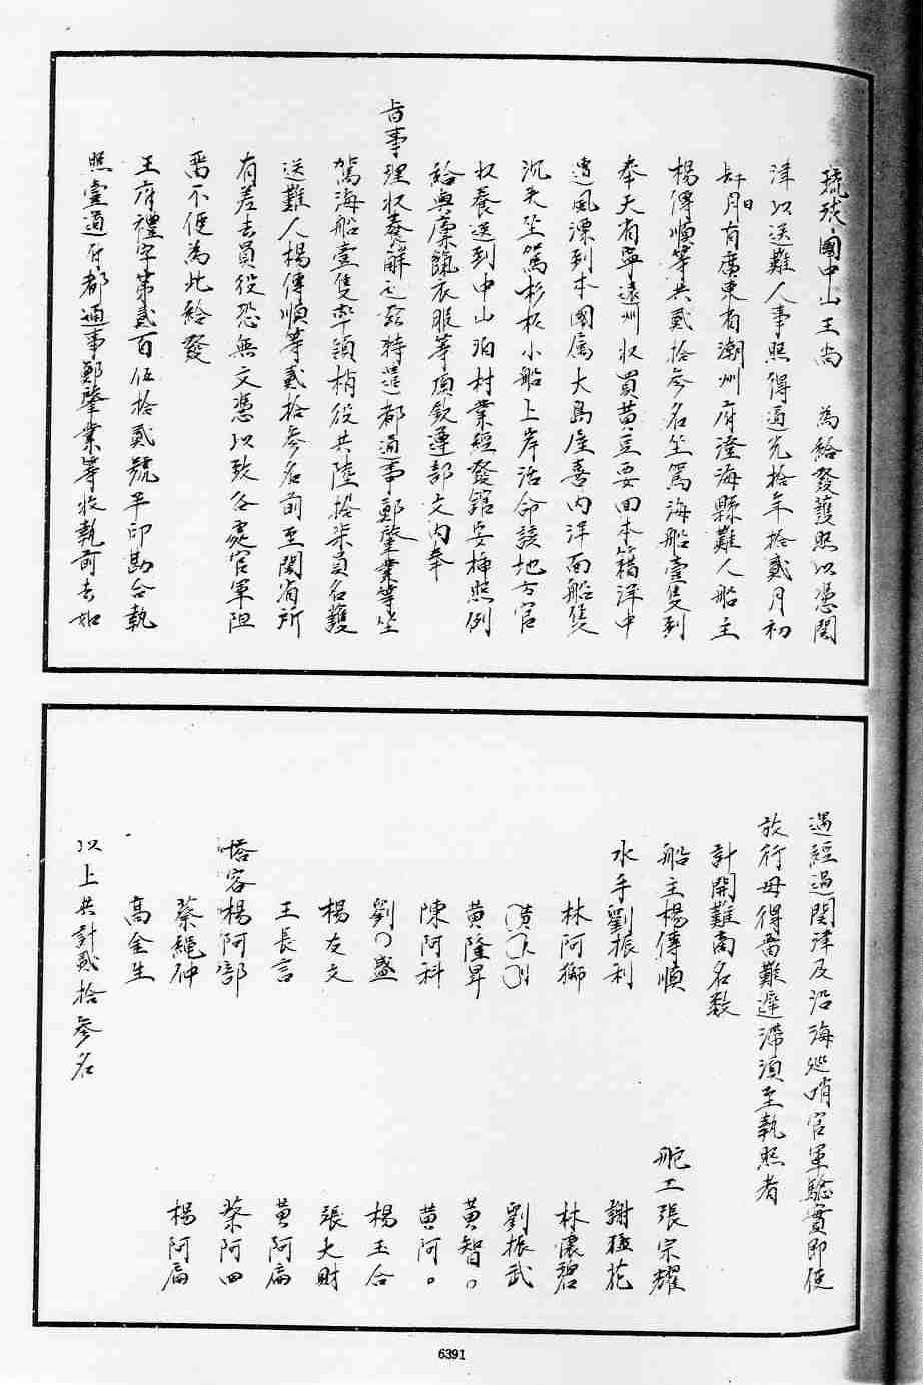 琉球國中山王尚　為給發護照以憑關
津以送難人事照得道光拾年拾貳月初
肆日有廣東省潮州府澄海縣難人船主
楊傳順等共貳拾參名坐駕海船壹隻到
奉天省寧遠州收買黃豆要回本籍洋中
遭風漂到本國屬大島座喜內洋面船隻
沉失坐駕杉板小船上岸活命該地方官
收養送到中山泊村業經發館安插照例
給與廩餼衣服等項欽遵部文內奉
旨事理收養解送茲特遣都通事鄭肇業等坐
駕海船壹隻率領梢役共陸拾柒員名護
送難人楊傳順等貳拾參名前至閩省所
有差去員役恐無文憑以致各處官軍阻
留不便為此給發
王府禮字第貳百伍拾貳號半印勘合執
照壹道付都通事鄭肇業等收執前去如
遇經過關津及沿海巡哨官軍驗實即便
放行毋得留難遲滯須至執照者
計開難商名數
船主楊傳順　舵工張宗耀
水手劉振利　謝花
林阿獅　林懷碧
黃　劉振武
黃隆昇　黃智
陳阿科　黃阿
劉盛　楊玉合
楊友文　張大財
王長言　黃阿扁
搭客楊阿部　蔡阿四
蔡繩仲　楊阿扁
高金生
以上共計貳拾參名
6391